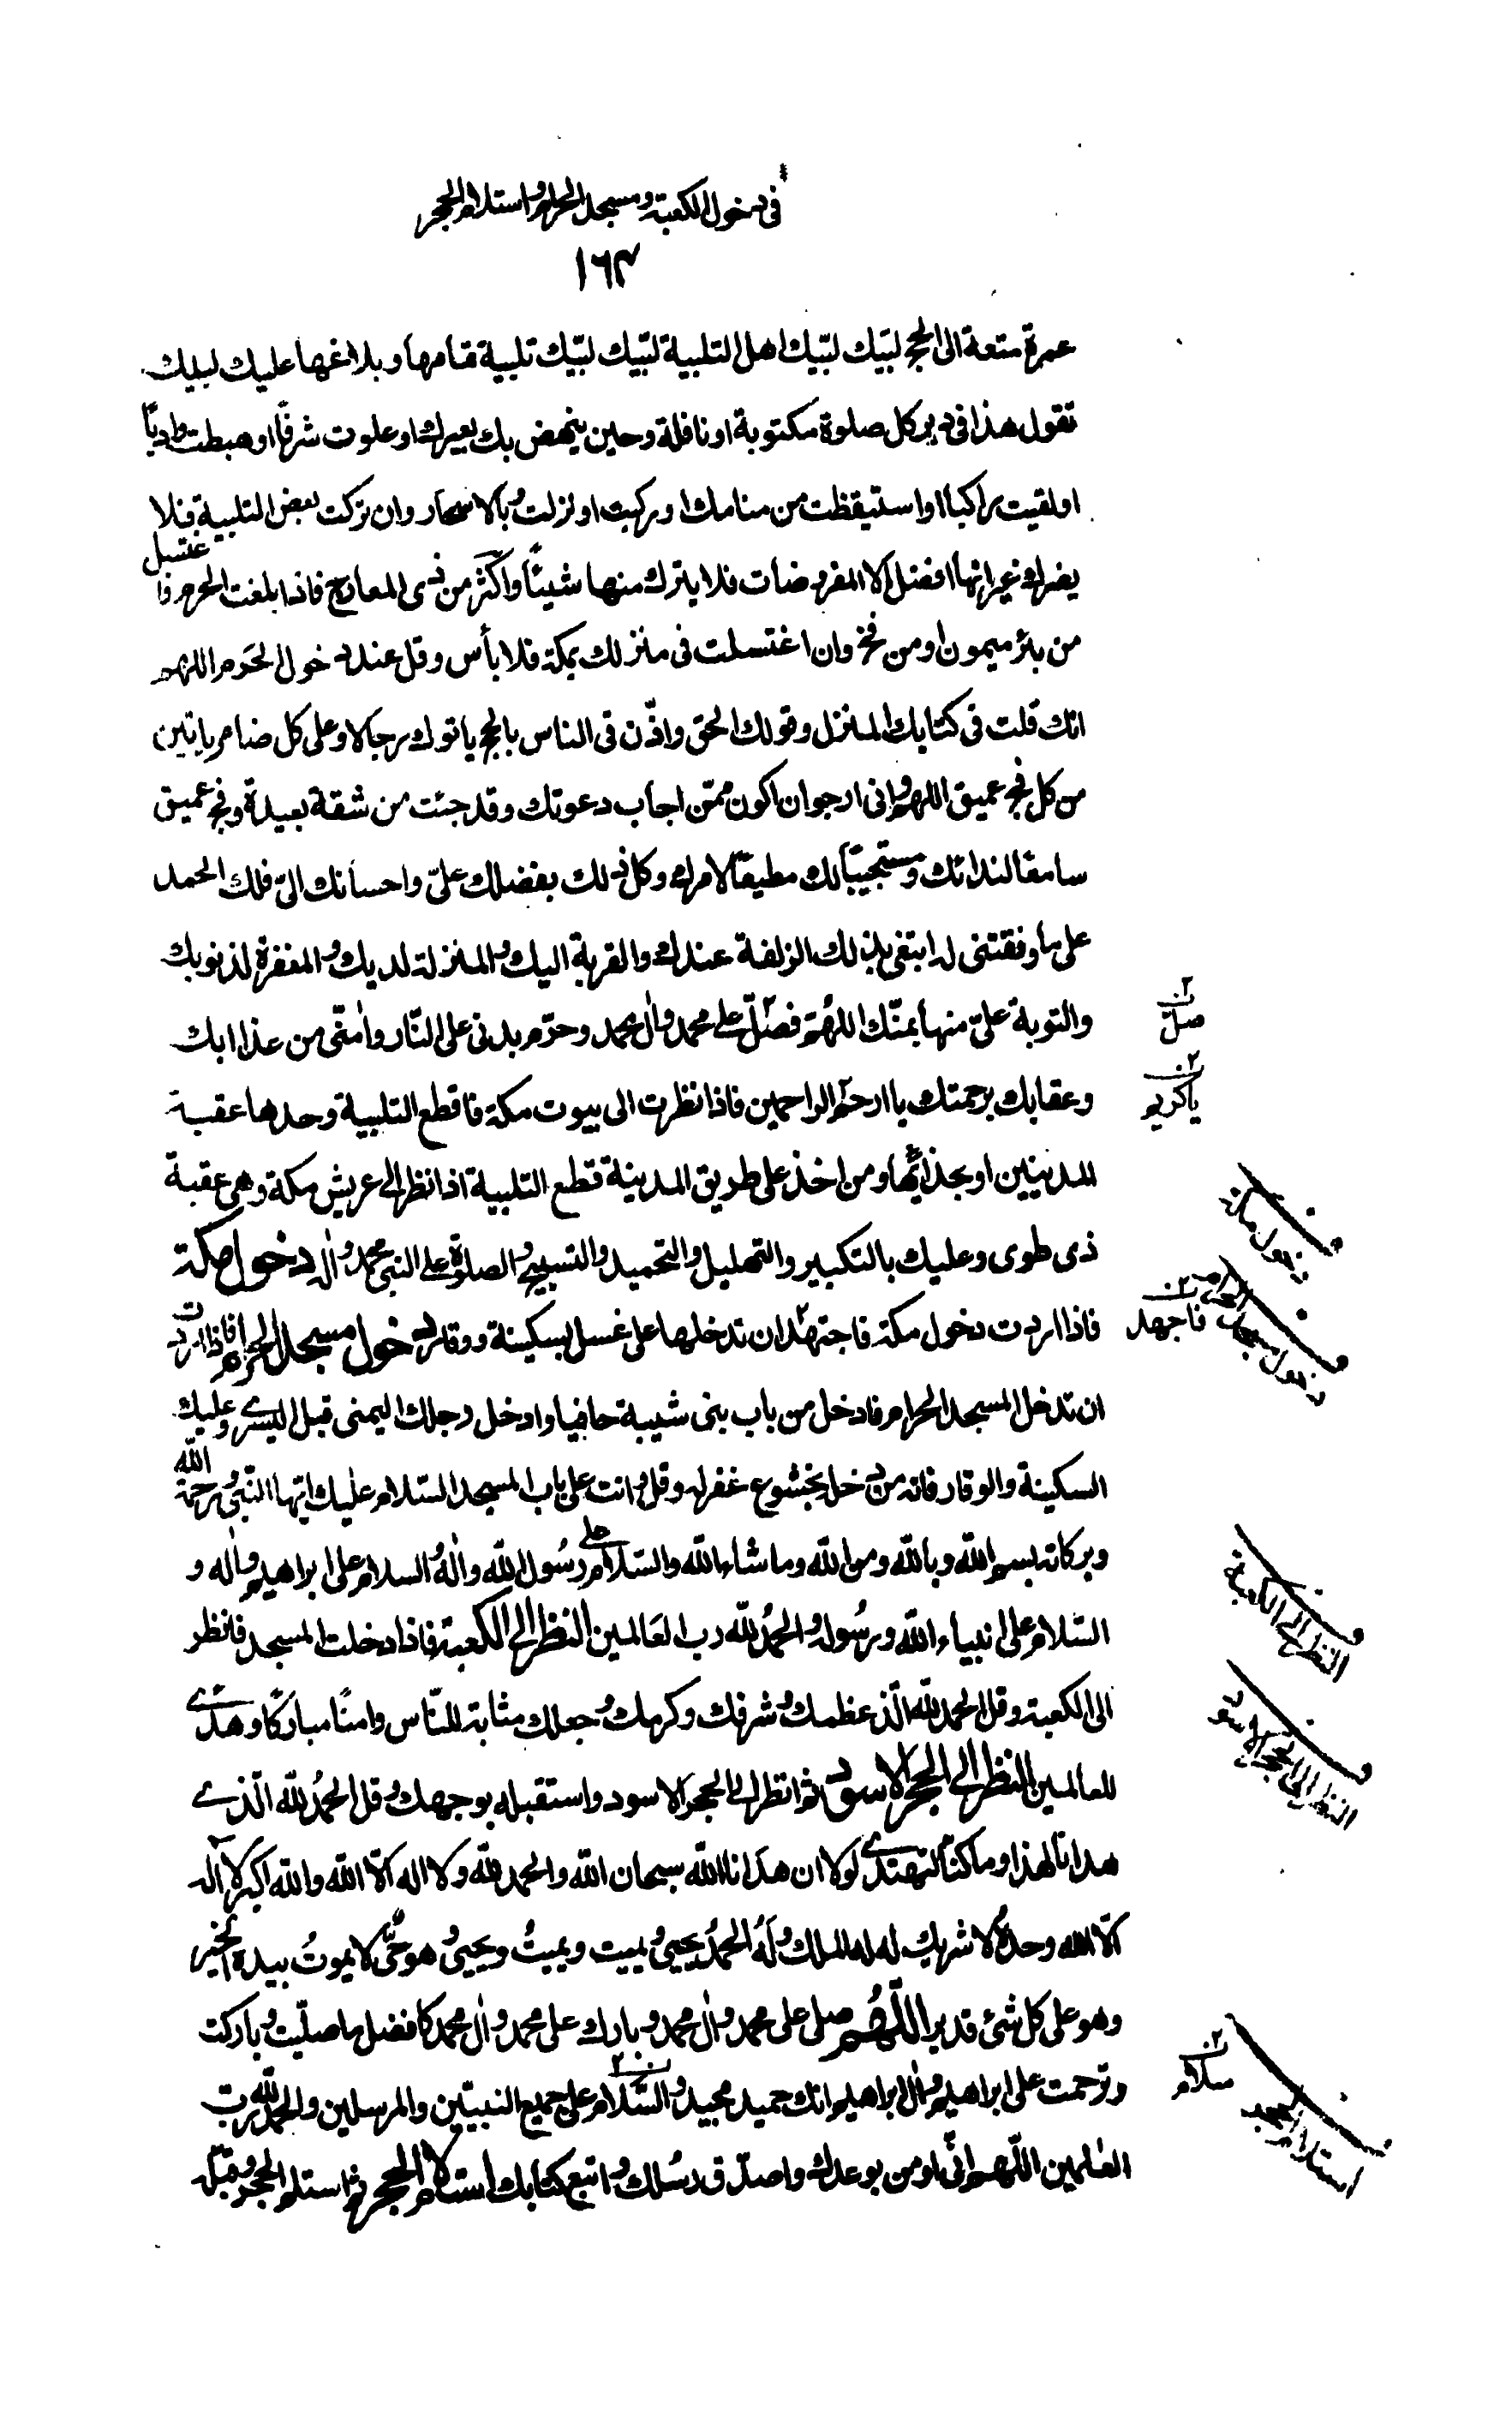 في دخول الكعبة ومسجد الحرام واستلام الحجر
١٦٣
عمرة متعة الى الحج لبيك لبيك اهل التلبية لبيك لبيك تلبية تمامها وبلاغها عليك لبيك
تقول هذا في دبر كل صلوة مكتوبة او نافلة وحين ينهض بك بعيرك او علوت شرفًا او هبطت واديًا
او لقيت راكبا او استيقظت من منامك او ركبت او نزلت وبالاسحار وان تركت بعض التلبية فلا
يضرك غير انها افضل الا المفروضات فلا يترك منها شيئًا واكثر من ذي المعارج فاذا بلغت الحرم فاغتسل
من بئر ميمون او من فخ وان اغتسلت في منزلك بمكة فلا بأس وقل عند دخول الحرم اللهم
انك قلت في كتابك المنزل وقولك الحق واذّن في الناس بالحج ياتوك رجالا وعلى كل ضامر ياتين
من كل فج عميق اللهم واني ارجو ان اكون ممّن اجاب دعوتك وقد جئت من شقة بعيدة وفج عميق
سامعًا لندائك ومستجيبًا لك مطيعًا لامرك وكل ذلك بفضلك عليّ واحسانك اليّ فلك الحمد
على ما وفقتني له ابتغي بذلك الزلفة عندك والقربة اليك والمنزلة لديك والمغفرة لذنوبك
والتوبة عليّ منها بمنّك اللهُمّ فصلّ على محمد وال محمد وحرّم بدني على النّار وامنّي من عذابك
صلّ
وعقابك برحمتك يا ارحم الراحمين فاذا نظرت الى بيوت مكة فاقطع التلبية وحدها عقبة
يا كريم
المدينين او بحذائها ومن اخذ على طريق المدينة قطع التلبية اذا نظر الى عريش مكة وهي عقبة
ذي طوى وعليك بالتكبير والتهليل والتحميد والتسبيح والصلوة على النبي محمد واله دخول مكة
دخول مكة
فاذا اردت دخول مكة فاجتهد ان تدخلها على غسل بسكينة ووقار دخول مسجد الحرام فاذا اردت
فاجهد
دخول مسجد الحرام
ان تدخل المسجد الحرام فادخل من باب بني شيبة حافيا وادخل رجلك اليمنى قبل اليسرى وعليك
السكينة والوقار فانه من دخل بخشوع غفر له وقل وانت على باب المسجد السّلام عليك ايّها النّبيّ ورحمة الله
وبركاته بسم الله وبالله ومن الله وما شاء الله والسّلام على رسُول الله وآله السلام على ابراهيم وآله و
السّلام على انبياء الله ورسُوله والحمدُ لله رب العَالمين النظر الى الكعبة فاذا دخلت المسجد فانظر
النظر الى الكعبة
الى الكعبة وقل الحمد لله الّذي عظمك وشرفك وكرمك وجعلك مثابة للنّاس وامنًا مباركًا وهدًى
للعالمين النظر الى الحجر الاسود ثم انظر الى الحجر الاسود واستقبله بوجهك وقل الحمدُ لله الّذي
النظر الى الحجر الاسود
هدانا لهذا وما كنا لنهتدي لولا ان هدانا الله سبحان الله والحمد لله ولا اله الّا الله والله اكبر لا اله
الّا الله وحدهُ لا شريك له له الملك ولهُ الحمدُ يحيي ويميت ويميتُ ويحيي وهو حيٌّ لا يموتُ بيده الخير
وهو على كل شئ قدير اللّهُم صلي على محمد وآل محمد وبارك على محمد وآل محمد كافضل ما صلّيت وباركت
وترحمت على ابراهيم وآل ابراهيم انك حميد مجيد والسّلام على جميع النبيّين والمرسلين والحمد لله رب
سلام
العٰلمين اللّهم انّي اومن بوعدك واصدّق رسُلك واتبع كتابك استلام الحجر ثم استلم الحجر وقبّله
استلام الحجر